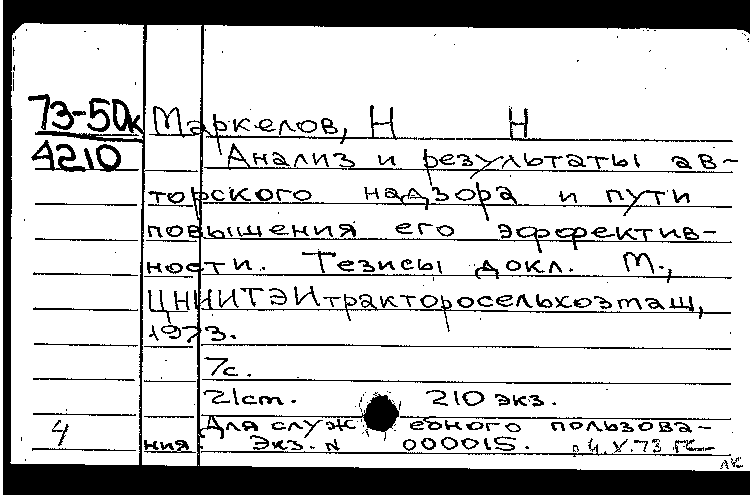 73-50к Маркелов, Н Н
4210 Анализ и результаты ав-
торского надзора и пути
повышения его эффектив-
ности. Тезисы докл. М.,
ЦНИИТЭИтракторосельхозмаш,
1973.
7с.
21см. 210 экз.
Для служебного пользова-
4 ния. Экз. N 000015. 4.V.73